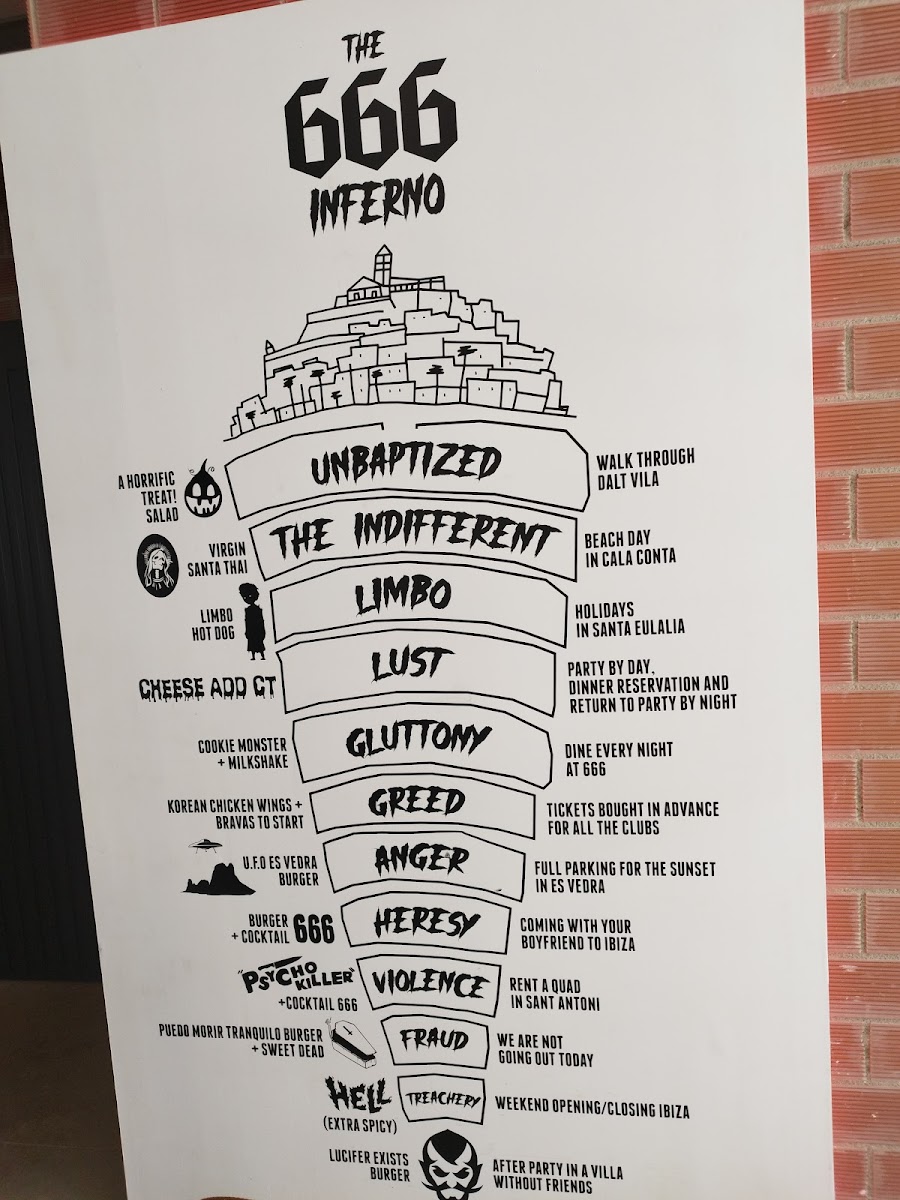 THE
666
INFERNO
A HORRIFIC
TREAT!
SALAD
UNBAPTIZED
WALK THROUGH
DALT VILA
VIRGIN
SANTA THAI
THE INDIFFERENT
BEACH DAY
IN CALA CONTA
LIMBO
HOT DOG
LIMBO
HOLIDAYS
IN SANTA EULALIA
CHEESE ADD CT
LUST
PARTY BY DAY,
DINNER RESERVATION AND
RETURN TO PARTY BY NIGHT
COOKIE MONSTER
+ MILKSHAKE
GLUTTONY
DINE EVERY NIGHT
AT 666
KOREAN CHICKEN WINGS +
BRAVAS TO START
GREED
TICKETS BOUGHT IN ADVANCE
FOR ALL THE CLUBS
U.F.O ES VEDRA
BURGER
ANGER
FULL PARKING FOR THE SUNSET
IN ES VEDRA
BURGER
+ COCKTAIL 666
HERESY
COMING WITH YOUR
BOYFRIEND TO IBIZA
"PSYCHO
KILLER"
+COCKTAIL 666
VIOLENCE
RENT A QUAD
IN SANT ANTONI
PUEDO MORIR TRANQUILO BURGER
+ SWEET DEAD
FRAUD
WE ARE NOT
GOING OUT TODAY
HELL
(EXTRA SPICY)
TREACHERY
WEEKEND OPENING/CLOSING IBIZA
LUCIFER EXISTS
BURGER
AFTER PARTY IN A VILLA
WITHOUT FRIENDS